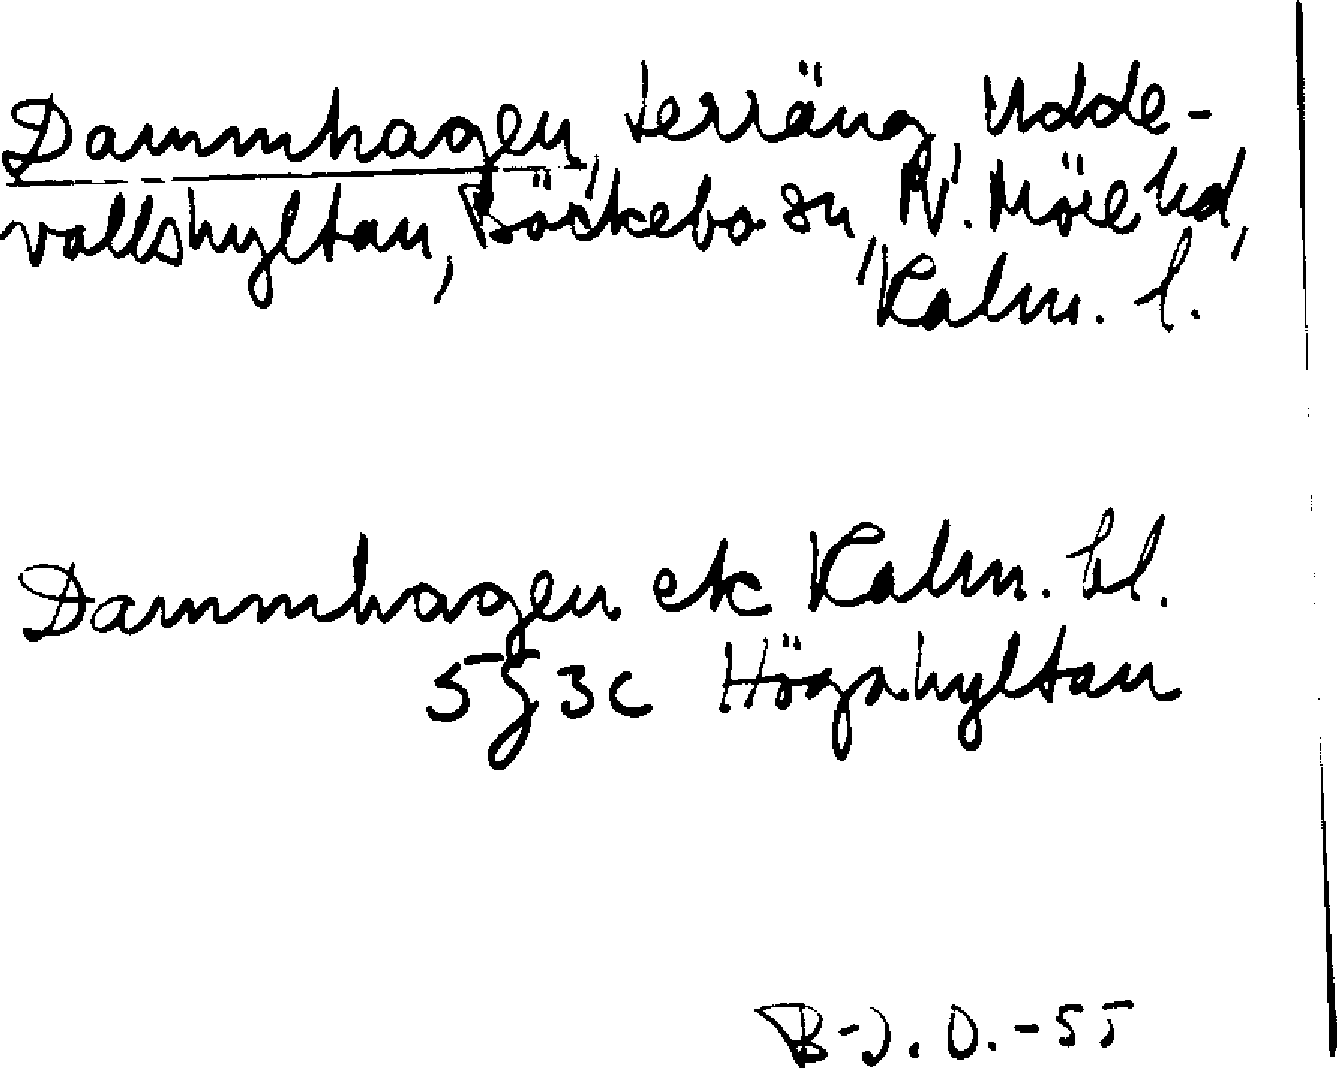 Dammhagen, terräng, Udde-
vallshyltan, Bäckebo sn, N. Möre hd,
Kalm. l.
Dammhagen ek Kalm. bl.
5G 3c Högahyltan
B-J. O. -55